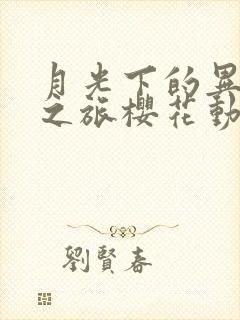 月光下的異
之旅櫻花動
劉賢春